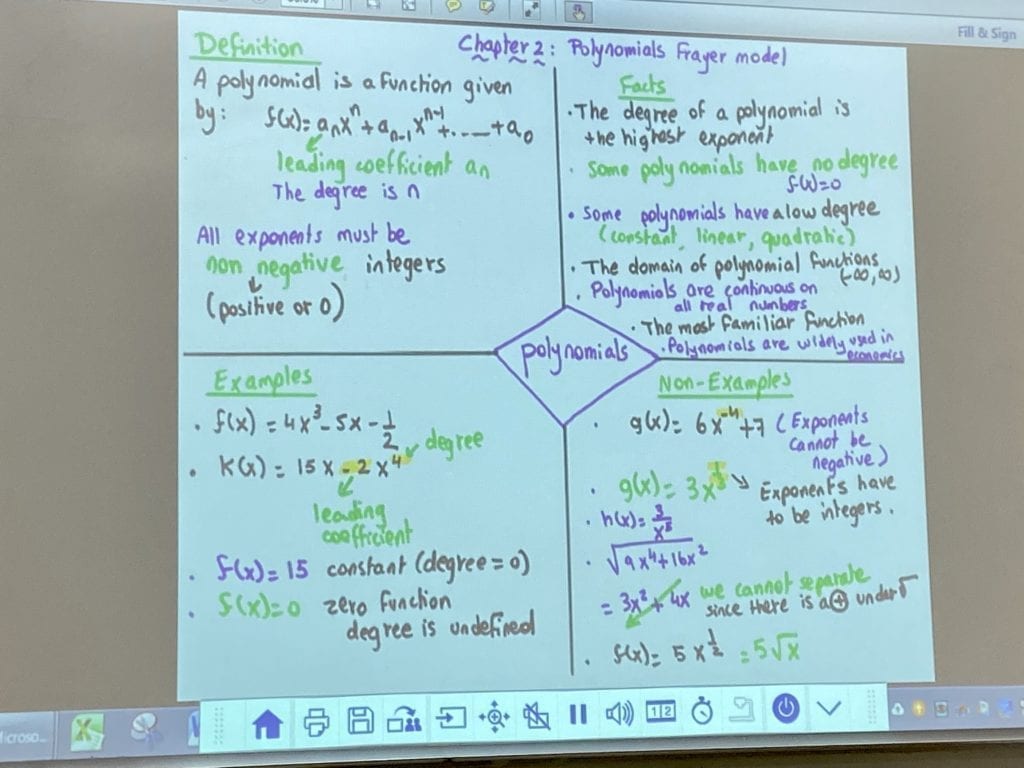 Fill & Sign
Chapter 2: Polynomials Frayer model
Definition
A polynomial is a function given
by: f(x)= aₙxⁿ + aₙ₋₁ xⁿ⁻¹ +.....+a₀
leading coefficient an
The degree is n
All exponents must be
non negative integers
(positive or 0)
Facts
· The degree of a polynomial is
the highest exponent
· Some polynomials have no degree
f(x)=0
· Some polynomials have a low degree
(constant, linear, quadratic)
· The domain of polynomial functions
(-∞,∞)
· Polynomials are continuous on
all real numbers
· The most familiar function
· Polynomials are widely used in
economics
polynomials
Examples
· f(x) = 4x³ - 5x - 1/2
· K(x) = 15x - 2x⁴ degree
leading
coefficient
· f(x)=15 constant (degree = 0)
· f(x)=0 zero function
degree is undefined
Non-Examples
· g(x)= 6x⁻⁴+7 (Exponents
cannot be
negative)
· g(x)= 3x^(1/3) → Exponents have
to be integers.
· h(x)= 3/x⁵
· √(9x⁴+16x²)
= 3x² + 4x we cannot separate
since there is a + under √
· f(x)= 5x^(1/2) = 5√x
icroso...
1 2